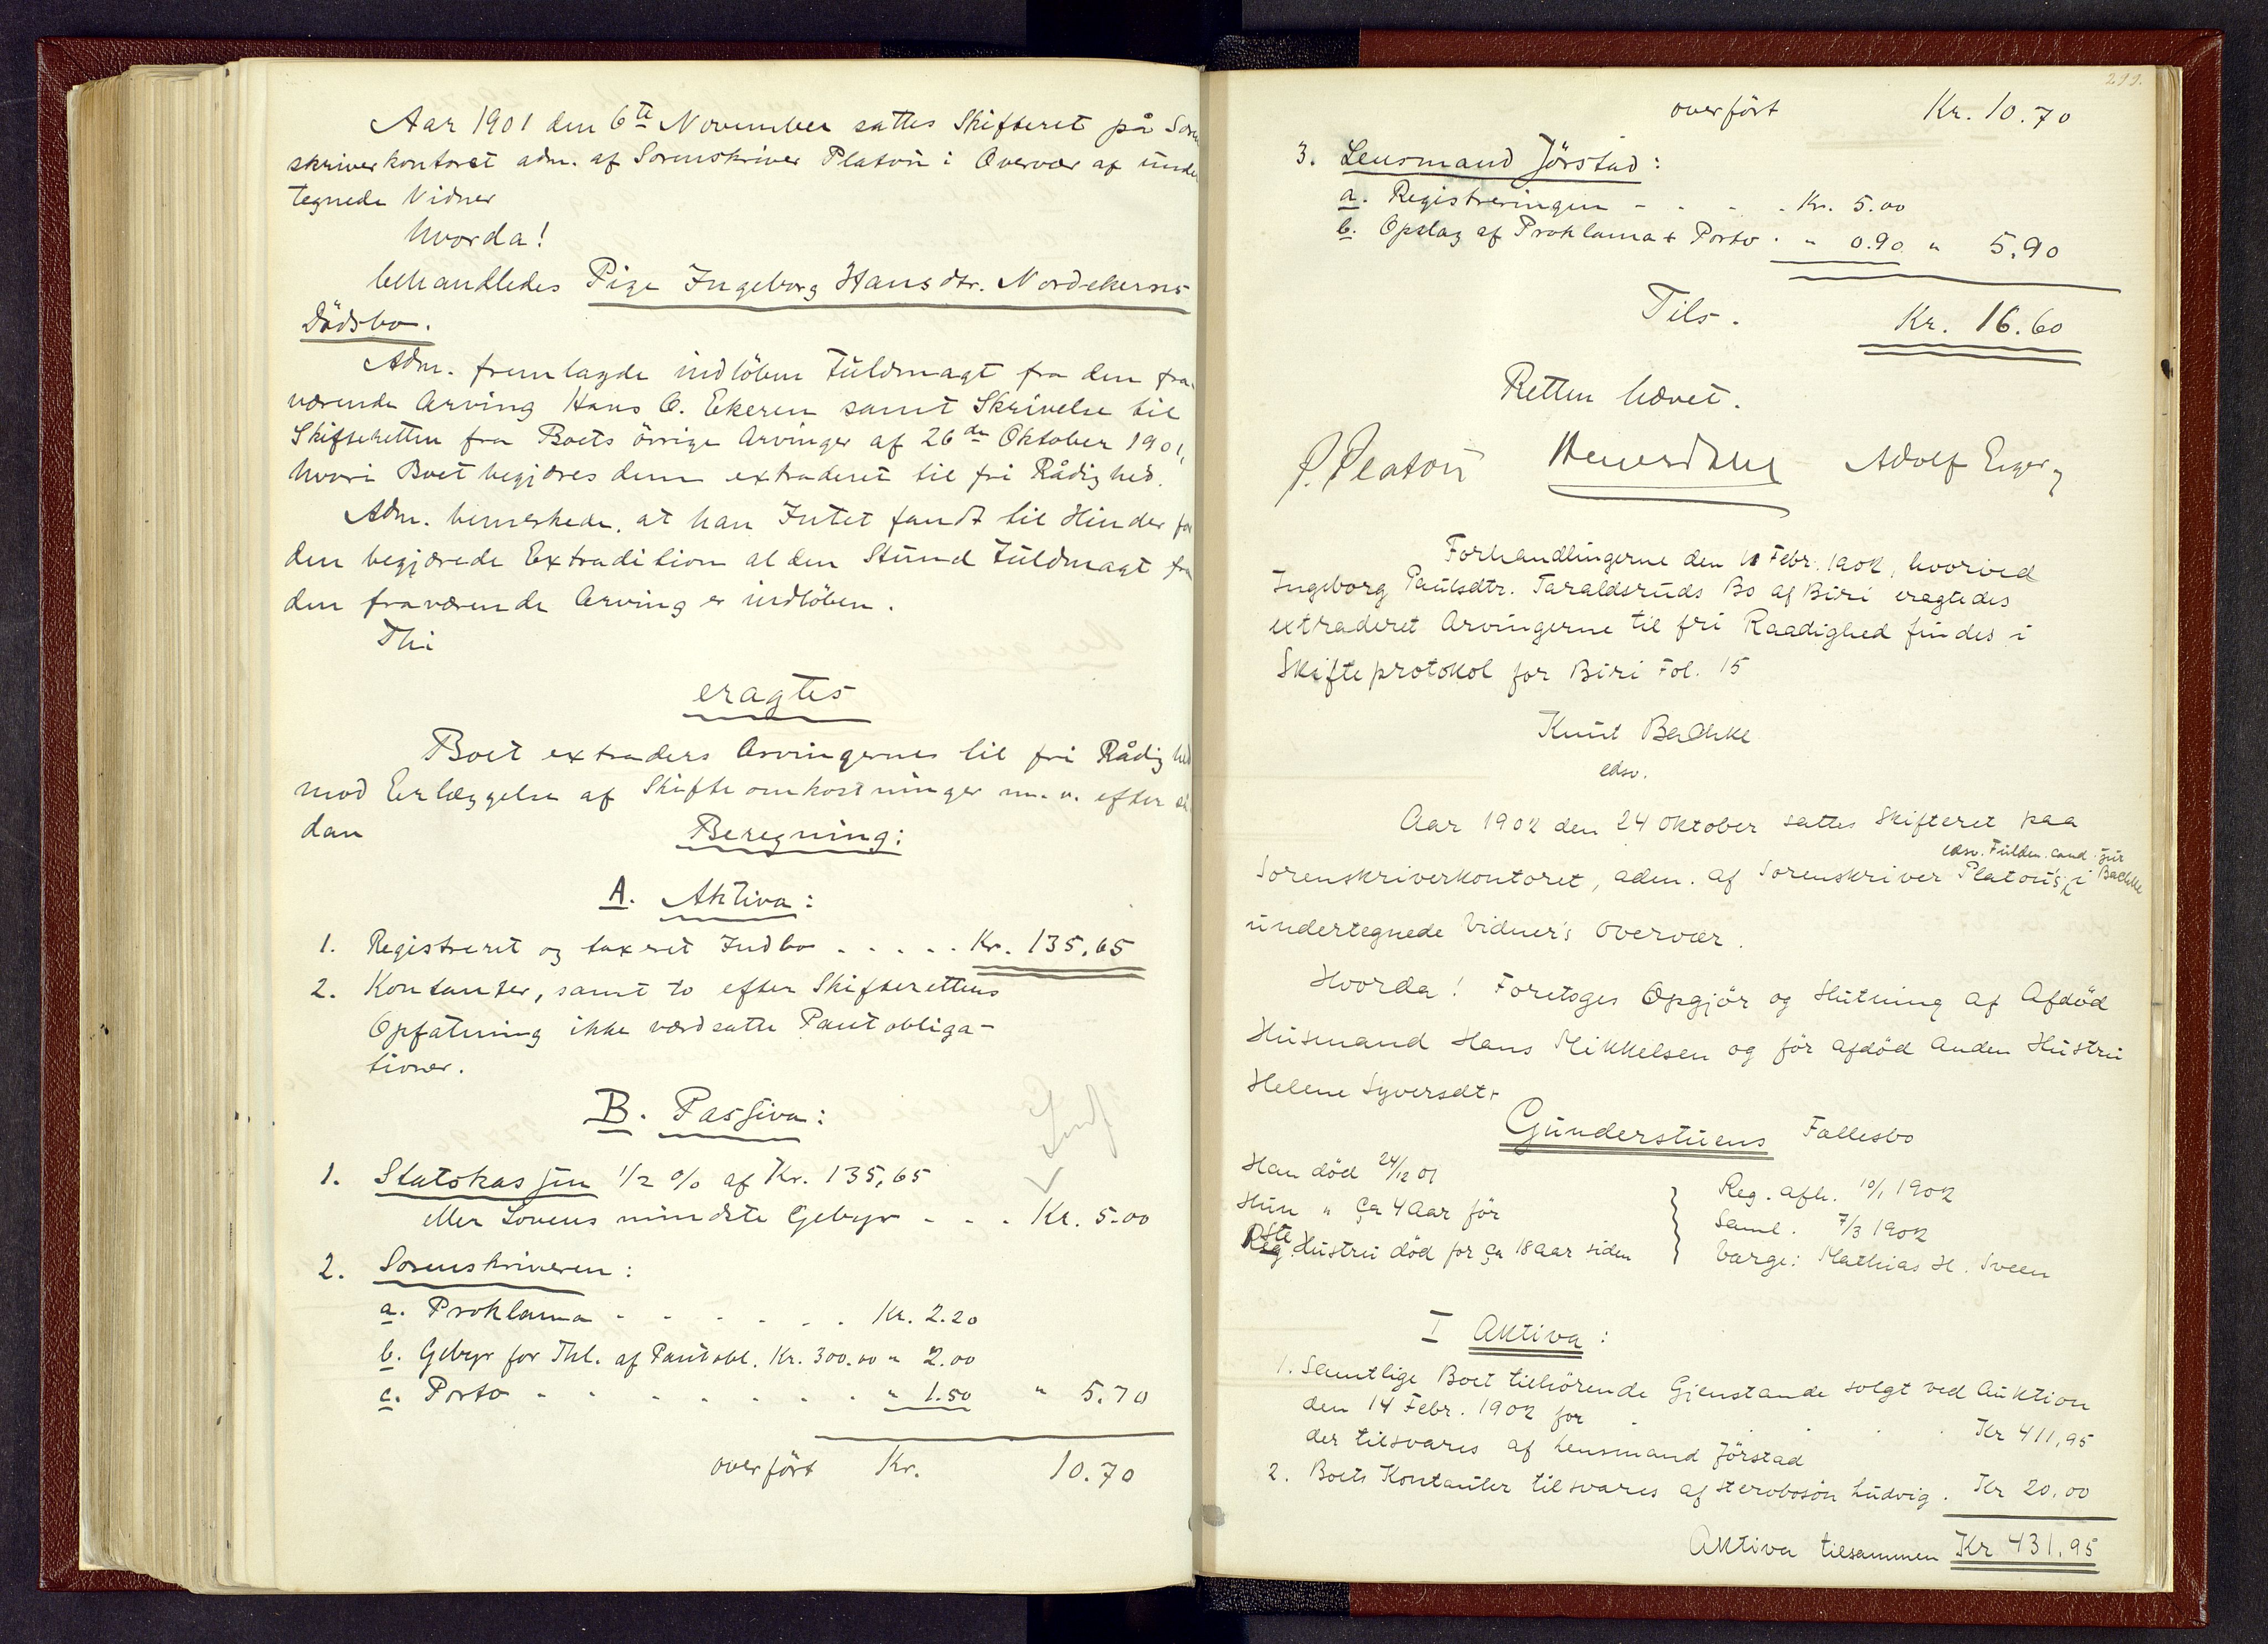 Aar 1901 den 6te November sattes Skifteret på Soren
skriverkontoret adm. af Sorenskriver Platou i Overvær af under
tegnede Vidner
hvorda!
behandledes Pige Ingeborg Hansdtr. Nordekerns
Dödsbo.
Adm. fremlagde indlöben Fuldmagt fra den fra-
værende Arving Hans O. Ekeren samt Skrivelse til
Skifteretten fra Boets övrige Arvinger af 26de Oktober 1901,
hvori Boet begjæres dem extraderet til fri Rådighed.
Adm. bemerkede, at han Intet fandt til Hinder for
den begjærede Extradition al den Stund Fuldmagt fra
den fraværende Arving er indlöben.
Thi
eragtes
Boet extraders Arvingernes til fri Rådighed
mod Erlæggelse af Skifteomkostninger m. v. efter så
dan
Beregning:
A. Aktiva:
1. Registreret og taxeret Indbo . . . . . Kr. 135.65
2. Kontanter, samt to efter Skifterettens
Opfatning ikke værdsatte Pantobliga-
tioner.
B. Passiva:
1. Statskassen 1/2 % af Kr. 135,65
eller Lovens mindste Gebyr - - . Kr. 5.00
2. Sorenskriveren:
a. Proklama - - - - - . Kr. 2.20
b. Gebyr for Thl. af Pantobl. Kr. 300.00 " 2.00
c. Porto - - - - . . . " 1.50 " 5.70
overfört Kr. 10.70
299.
overfört Kr. 10.70
3. Lensmand Jörstad:
a. Registreringen - - . - . Kr. 5.00
b. Opslag af Proklama + Porto . " 0.90 " 5.90
Tils. Kr. 16.60
Retten hævet.
P. Platou Adolf
Forhandlingerne den 11 Febr. 1902, hvorved
Ingeborg Paulsdtr. Taraldsruds Bo af Biri eragtedes
extraderet Arvingerne til fri Raadighed findes i
Skifteprotokol for Biri Fol. 15
Knut Bachke
edsv.
Aar 1902 den 24 Oktober sattes Skifteret paa
edsv. Fuldm. cand. jur
Sorenskriverkontoret, adm. af Sorenskriver Platou's, i Bachke
undertegnede Vidner's Overvær.
Hvorda! Foretoges Opgjör og Slutning af Afdöd
Husmand Hans Mikkelsen og för afdöd Anden Hustru
Helene Syversdtr
Gunderstuens Fællesbo
Han död 24/12 01
Hun " Ca 4 Aar för
1ste Hustru död for ca 18 Aar siden
Reg. afh. 10/1 1902
Saml. 7/3 1902
Værge: Mathias H. Sveen
I Aktiva:
1. Samtlige Boet tilhörende Gjenstande solgt ved Auktion
den 14 Febr. 1902 for . . . Kr 411,95
der tilsvares af Lensmand Jörstad
2. Boets Kontanter tilsvares af Stervbosön Ludvig . Kr 20.00
Aktiva tilsammen Kr 431.95